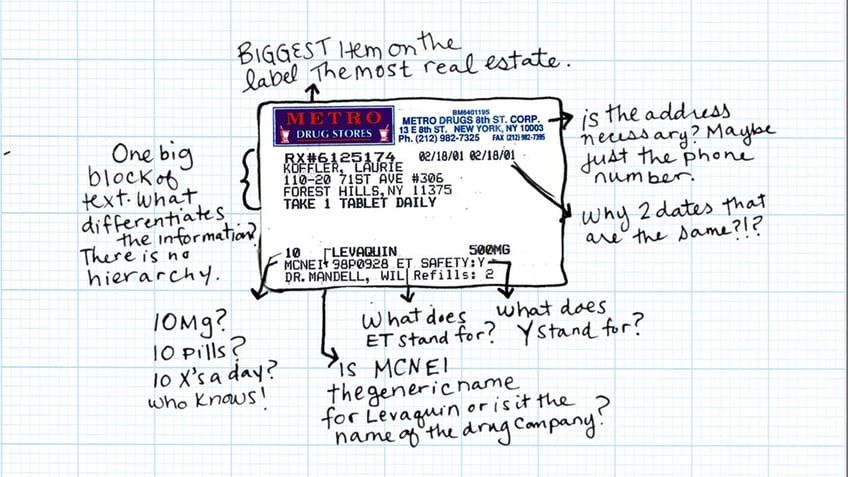 BIGGEST Item on the
label The most real estate.
METRO
DRUG STORES
BM6401195
METRO DRUGS 8th ST. CORP.
13 E 8th ST. NEW YORK, NY 10003
Ph. (212) 982-7325 FAX (212) 982-7395
RX#6125174 02/18/01 02/18/01
KOFFLER, LAURIE
110-20 71ST AVE #306
FOREST HILLS,NY 11375
TAKE 1 TABLET DAILY
10 LEVAQUIN 500MG
MCNEI 98P0928 ET SAFETY:Y
DR. MANDELL, WIL Refills: 2
One big
block of
text. What
differentiates
the information?
There is no
hierarchy.
is the address
necessary? Maybe
just the phone
number.
Why 2 dates that
are the same?!?
10Mg?
10 Pills?
10 X's a day?
Who Knows!
What does
ET stand for?
What does
Y stand for?
IS MCNEI
the generic name
for Levaquin or is it the
name of the drug company?